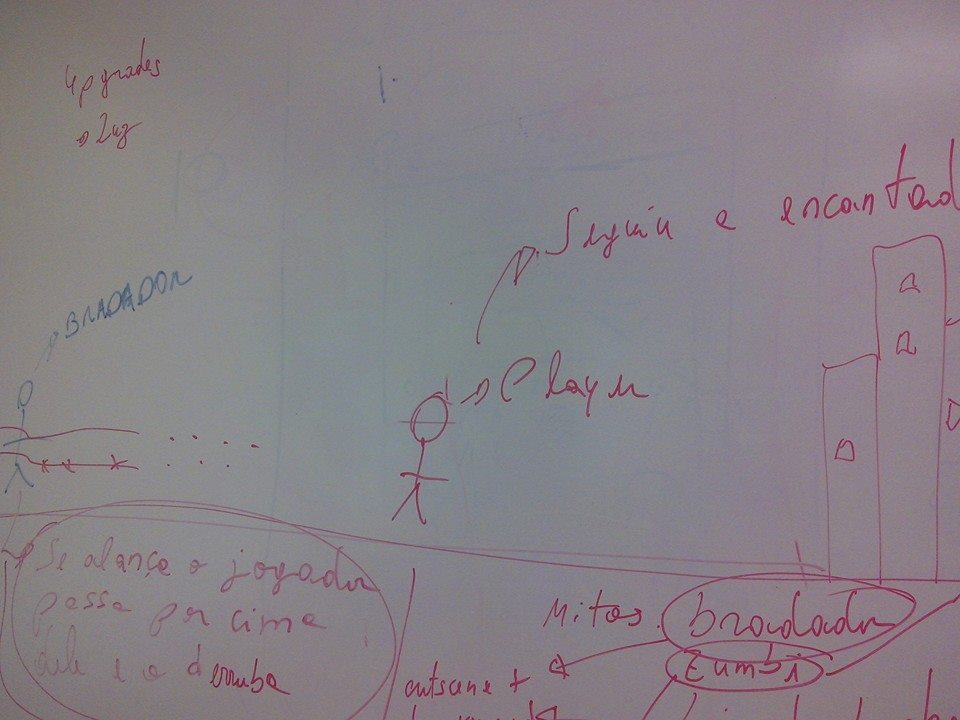 Upgrades
Luz
Seguir e encantad
BRADADOR
Player
Se alança o jogador
passa por cima
dele e o derruba
Mitos bradador
Zumbi
cutscene +